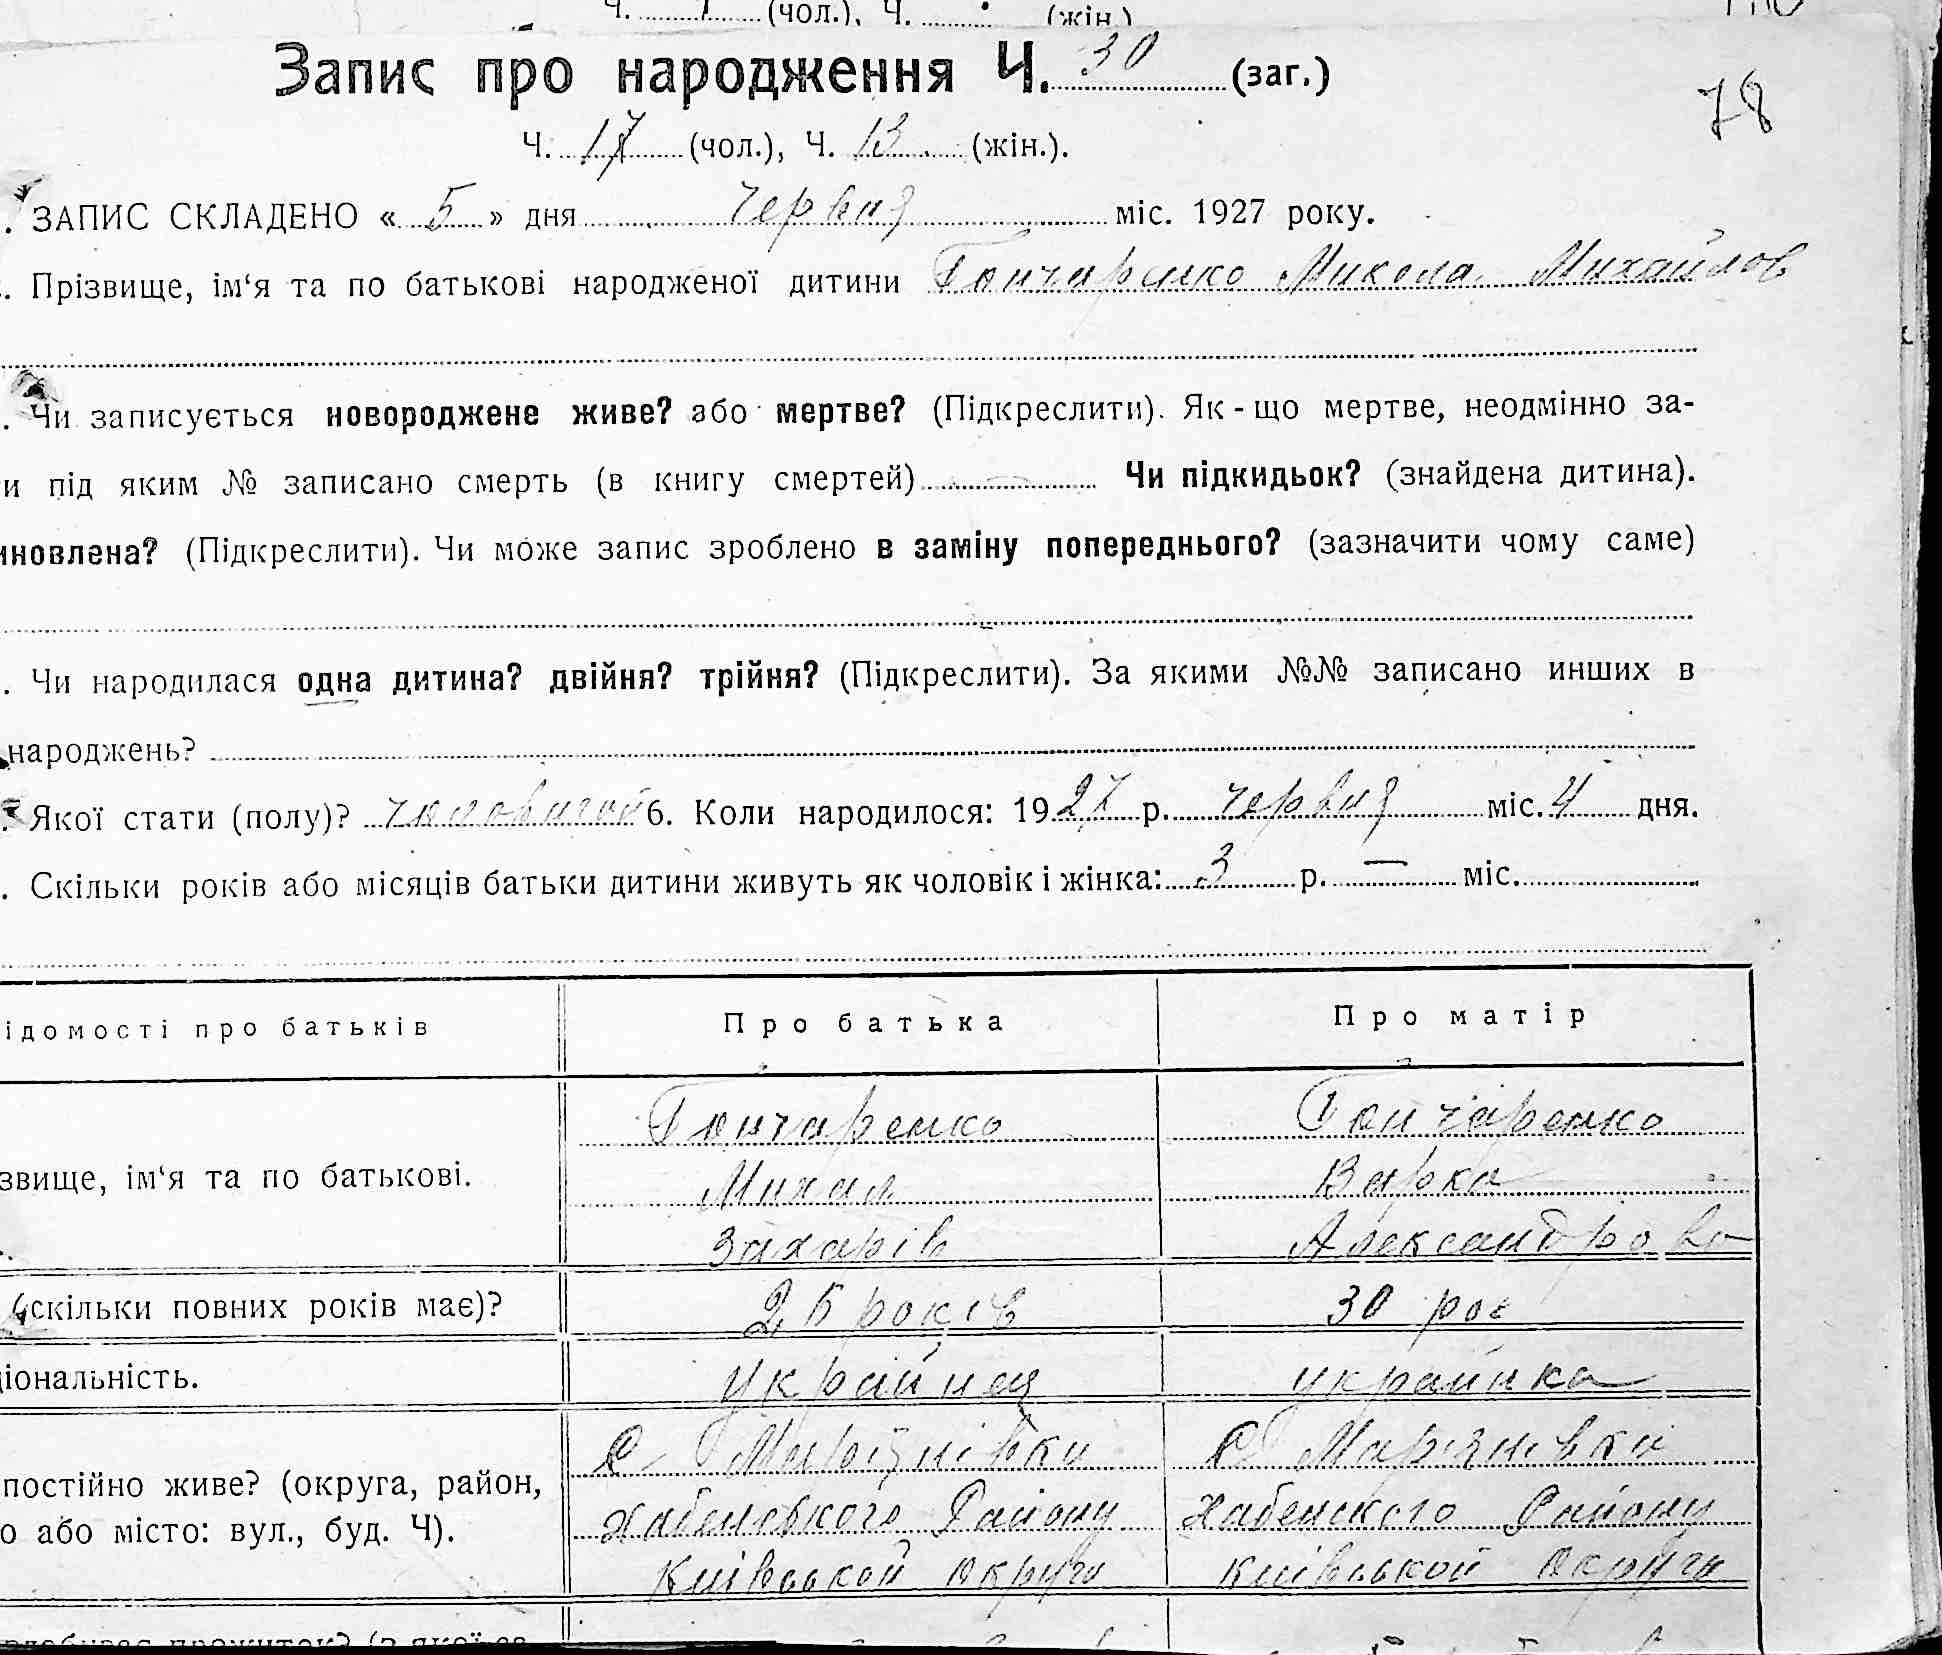 Ч. (чол.), Ч. (жін.)
Запис про народження Ч. 30 (заг.)
78
Ч. 17 (чол.), Ч. 13 (жін.).
. ЗАПИС СКЛАДЕНО « 5 » дня червня міс. 1927 року.
. Прізвище, ім‘я та по батькові народженої дитини Гончаренко Микола Михайлов
. Чи записується новороджене живе? або мертве? (Підкреслити). Як - що мертве, неодмінно за-
и під яким № записано смерть (в книгу смертей) Чи підкидьок? (знайдена дитина).
иновлена? (Підкреслити). Чи може запис зроблено в заміну попереднього? (зазначити чому саме)
. Чи народилася одна дитина? двійня? трійня? (Підкреслити). За якими №№ записано инших в
народжень?
. Якої стати (полу)? чоловичой 6. Коли народилося: 1927 р. червня міс. 4 дня.
. Скільки років або місяців батьки дитини живуть як чоловік і жінка: 3 р. — міс.
ідомості про батьків Про батька Про матір
Гончаренко Гончаренко
звище, ім‘я та по батькові. Михал Варка
Захарів Александрова
(скільки повних років має)? 26 років 30 рок
ціональність. украйнец украинка
С. Мар'янівки С Марянвка
постійно живе? (округа, район, Хабенського Району Хабенского Району
о або місто: вул., буд. Ч). Київської округи Київської округи